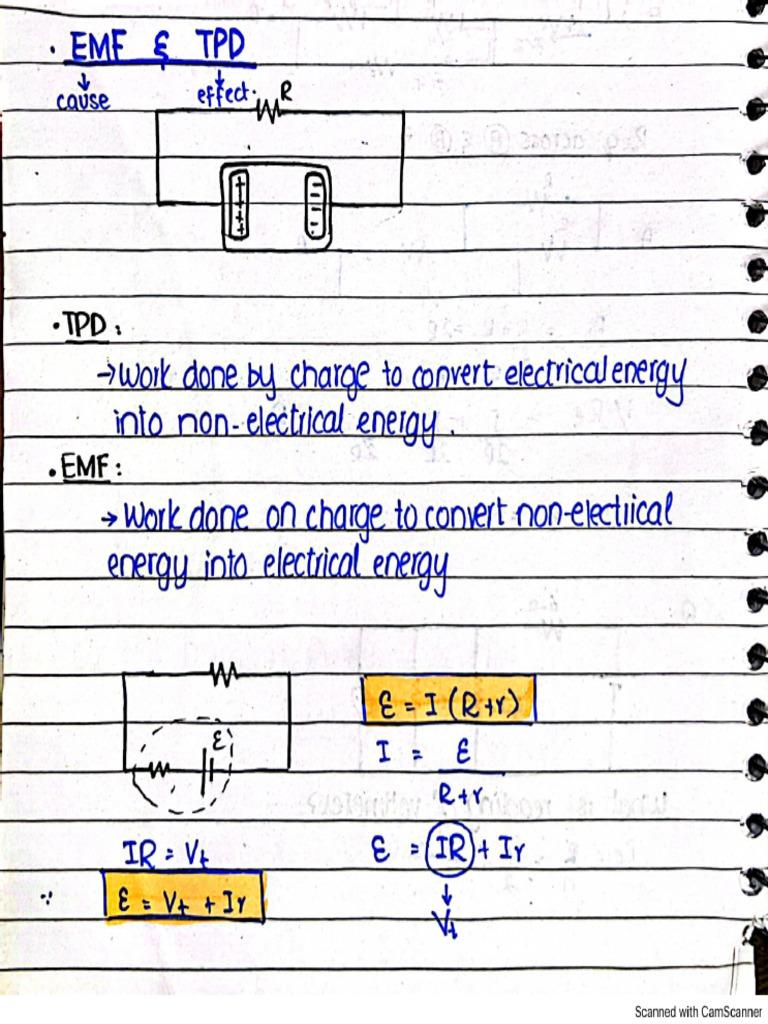 · EMF & TPD
cause
effect.
R
+ + + +
- - - -
· TPD:
→ work done by charge to convert electrical energy
into non-electrical energy.
· EMF:
→ Work done on charge to convert non-electiical
energy into electrical energy
ε = I (R+r)
ε
I = ε
R+r
IR = Vt
ε = IR + Ir
∵ ε = Vt + Ir
Vt
Scanned with CamScanner